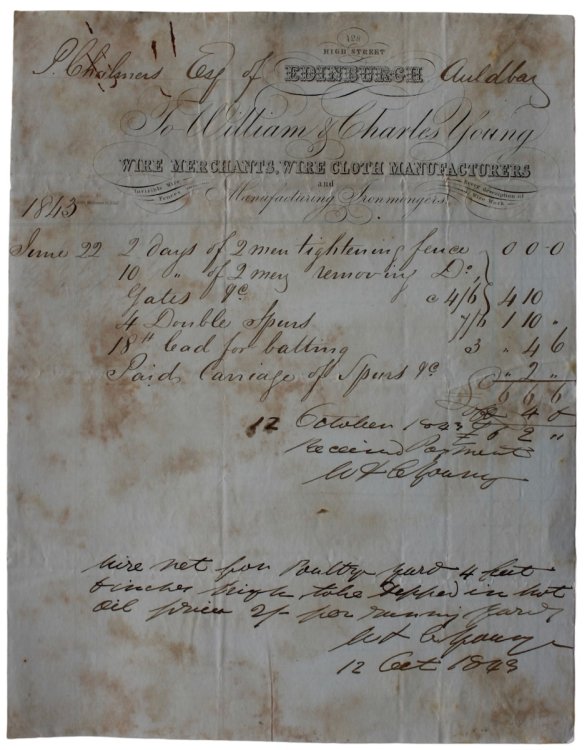 128
HIGH STREET
P. Chalmers Esq of EDINBURGH Auldbar
To William & Charles Young
WIRE MERCHANTS, WIRE CLOTH MANUFACTURERS
Invisible Wire Fences and Every description of Wire Work
Manufacturing Ironmongers.
1843
June 22 2 days of 2 men tightening fence 0 0 0
10 " of 2 men removing Do.
Gates &c 4/6 4 10
4 Double Spurs 7/6 1 10 "
18 lead for batting 3 " 4 6
Paid Carriage of Spurs &c " 2 "
6 6 6
4 6
12 October 1843 £6 2 "
Received Payment
W & C Young
Wire net for Poultry yard 4 feet
6 inches high to be dipped in hot
oil price 2/ per running yard
W & C Young
12 Oct 1843